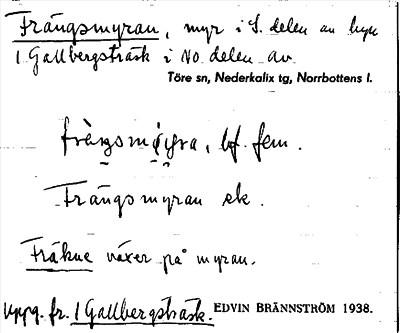 Frängsmyran, myr i S. delen av byn
1 Gallbergsträsk i NO. delen av
Töre sn, Nederkalix tg, Norrbottens l.
bf. fem.
Frängsmyran ek.
Fräkne växer på myran.
Uppg. fr. 1 Gallbergsträsk. EDVIN BRÄNNSTRÖM 1938.